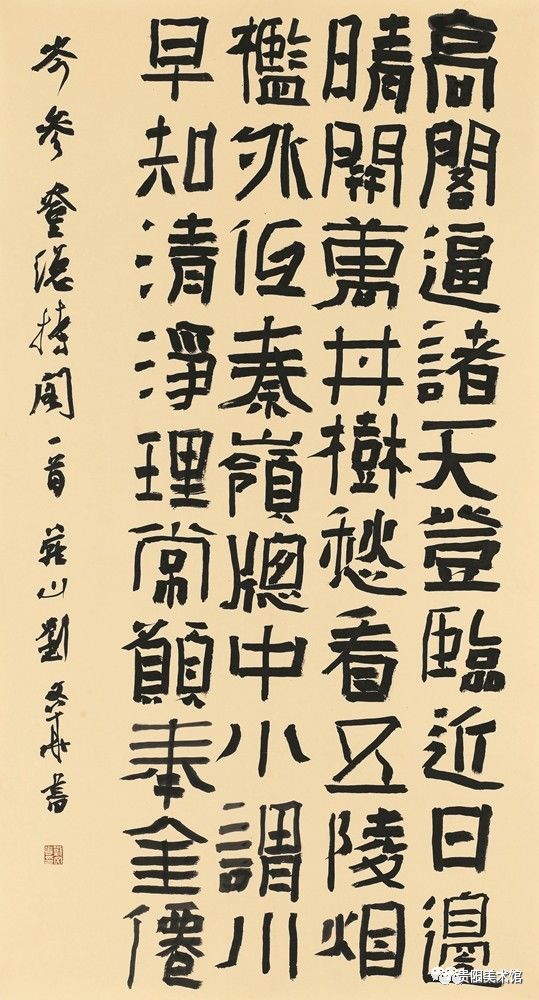 高閣逼諸天登臨近日邊
晴開萬井樹愁看五陵烟
檻外低秦嶺牕中小謂川
早知清淨理常願奉金僊
岑參登總持閣一首 山劉 書
贵阳美术馆